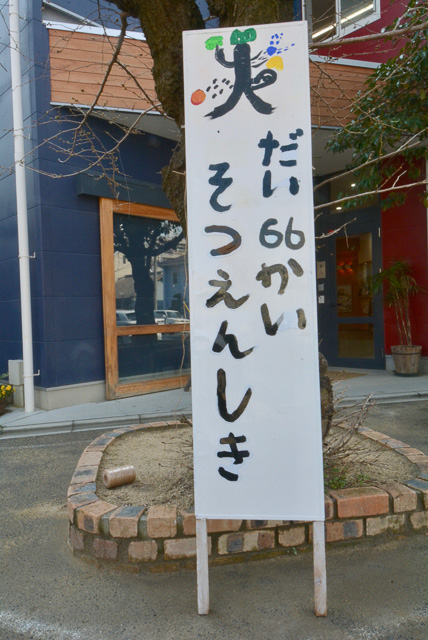 だい66かい
そつえんしき